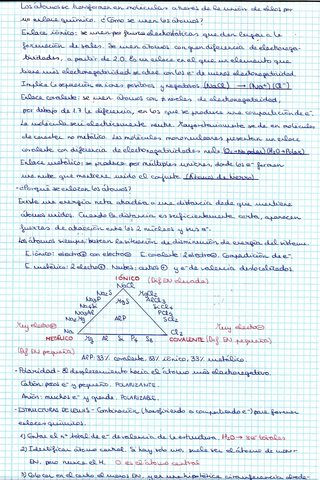 Los átomos se transforman en moléculas a través de la unión de ellos por
un enlace químico. ¿Cómo se unen los átomos?
Enlace iónico: se unen por fuerzas electrostáticas que dan lugar a la
formación de sales. Se unen átomos con gran diferencia de electronega-
tividades, a partir de 2.0. Es un enlace en el que un elemento que
tiene más electronegatividad se atrae con los e⁻ de menos electronegatividad.
Implica la separación en iones positivos y negativos (NaCl) → (Na⁺) (Cl⁻)
Enlace covalente: se unen átomos con niveles de electronegatividad,
por debajo de 1.7 de diferencia, en los que se produce una compartición de e⁻.
La molécula será electricamente neutra. Mayoritariamente se da en moléculas
de carácter no metálico. Las moléculas mononucleares presentan un enlace
covalente con diferencia de electronegatividades nula (O₂ → No polar) (H₂O → Polar)
Enlace metálico: se produce por múltiples uniones, donde los e⁻ forman
una nube que mantiene unido el conjunto. (Átomos de hierro)
¿Por qué se enlazan los átomos?
Existe una energía neta atractiva a una distancia dada que mantiene
átomos unidos. Cuando la distancia es suficientemente corta, aparecen
fuerzas de atracción entre los 2 núcleos y sus e⁻.
Los átomos siempre buscan la situación de disminución de energía del sistema.
E. iónico: electro⊕ con electro⊖ E. covalente: 2 electro⊖. Compartición de e⁻.
E. metálico: 2 electro⊕. Nubes, cationes ⊕ y e⁻ de valencia deslocalizados.
IÓNICO (Dif EN elevada)
NaCl
Na₂S MgCl₂
Na₃P AlCl₃
MgS SiCl₄
PCl₅
AlP SCl₂
Muy electro⊕ Muy electro⊖
Na Cl₂
METÁLICO Mg Al Si P₄ S₈ COVALENTE (Dif EN pequeña)
(Dif EN pequeña)
AlP: 33% covalente, 33% iónico, 33% metálico.
Polaridad: desplazamiento hacia el átomo más electronegativo.
Catión: pocos e⁻ y pequeño. POLARIZANTE.
Anión: muchos e⁻ y grande. POLARIZABLE.
ESTRUCTURAS DE LEWIS: Combinación (transfiriendo o compartiendo e⁻) para formar
enlaces químicos.
1) Contar el nº total de e⁻ de valencia de la estructura. H₂O → 8e⁻ totales
2) Identificar átomo central. Si hay solo uno, suele ser el átomo de menor
EN, pero nunca el H. O es el átomo central